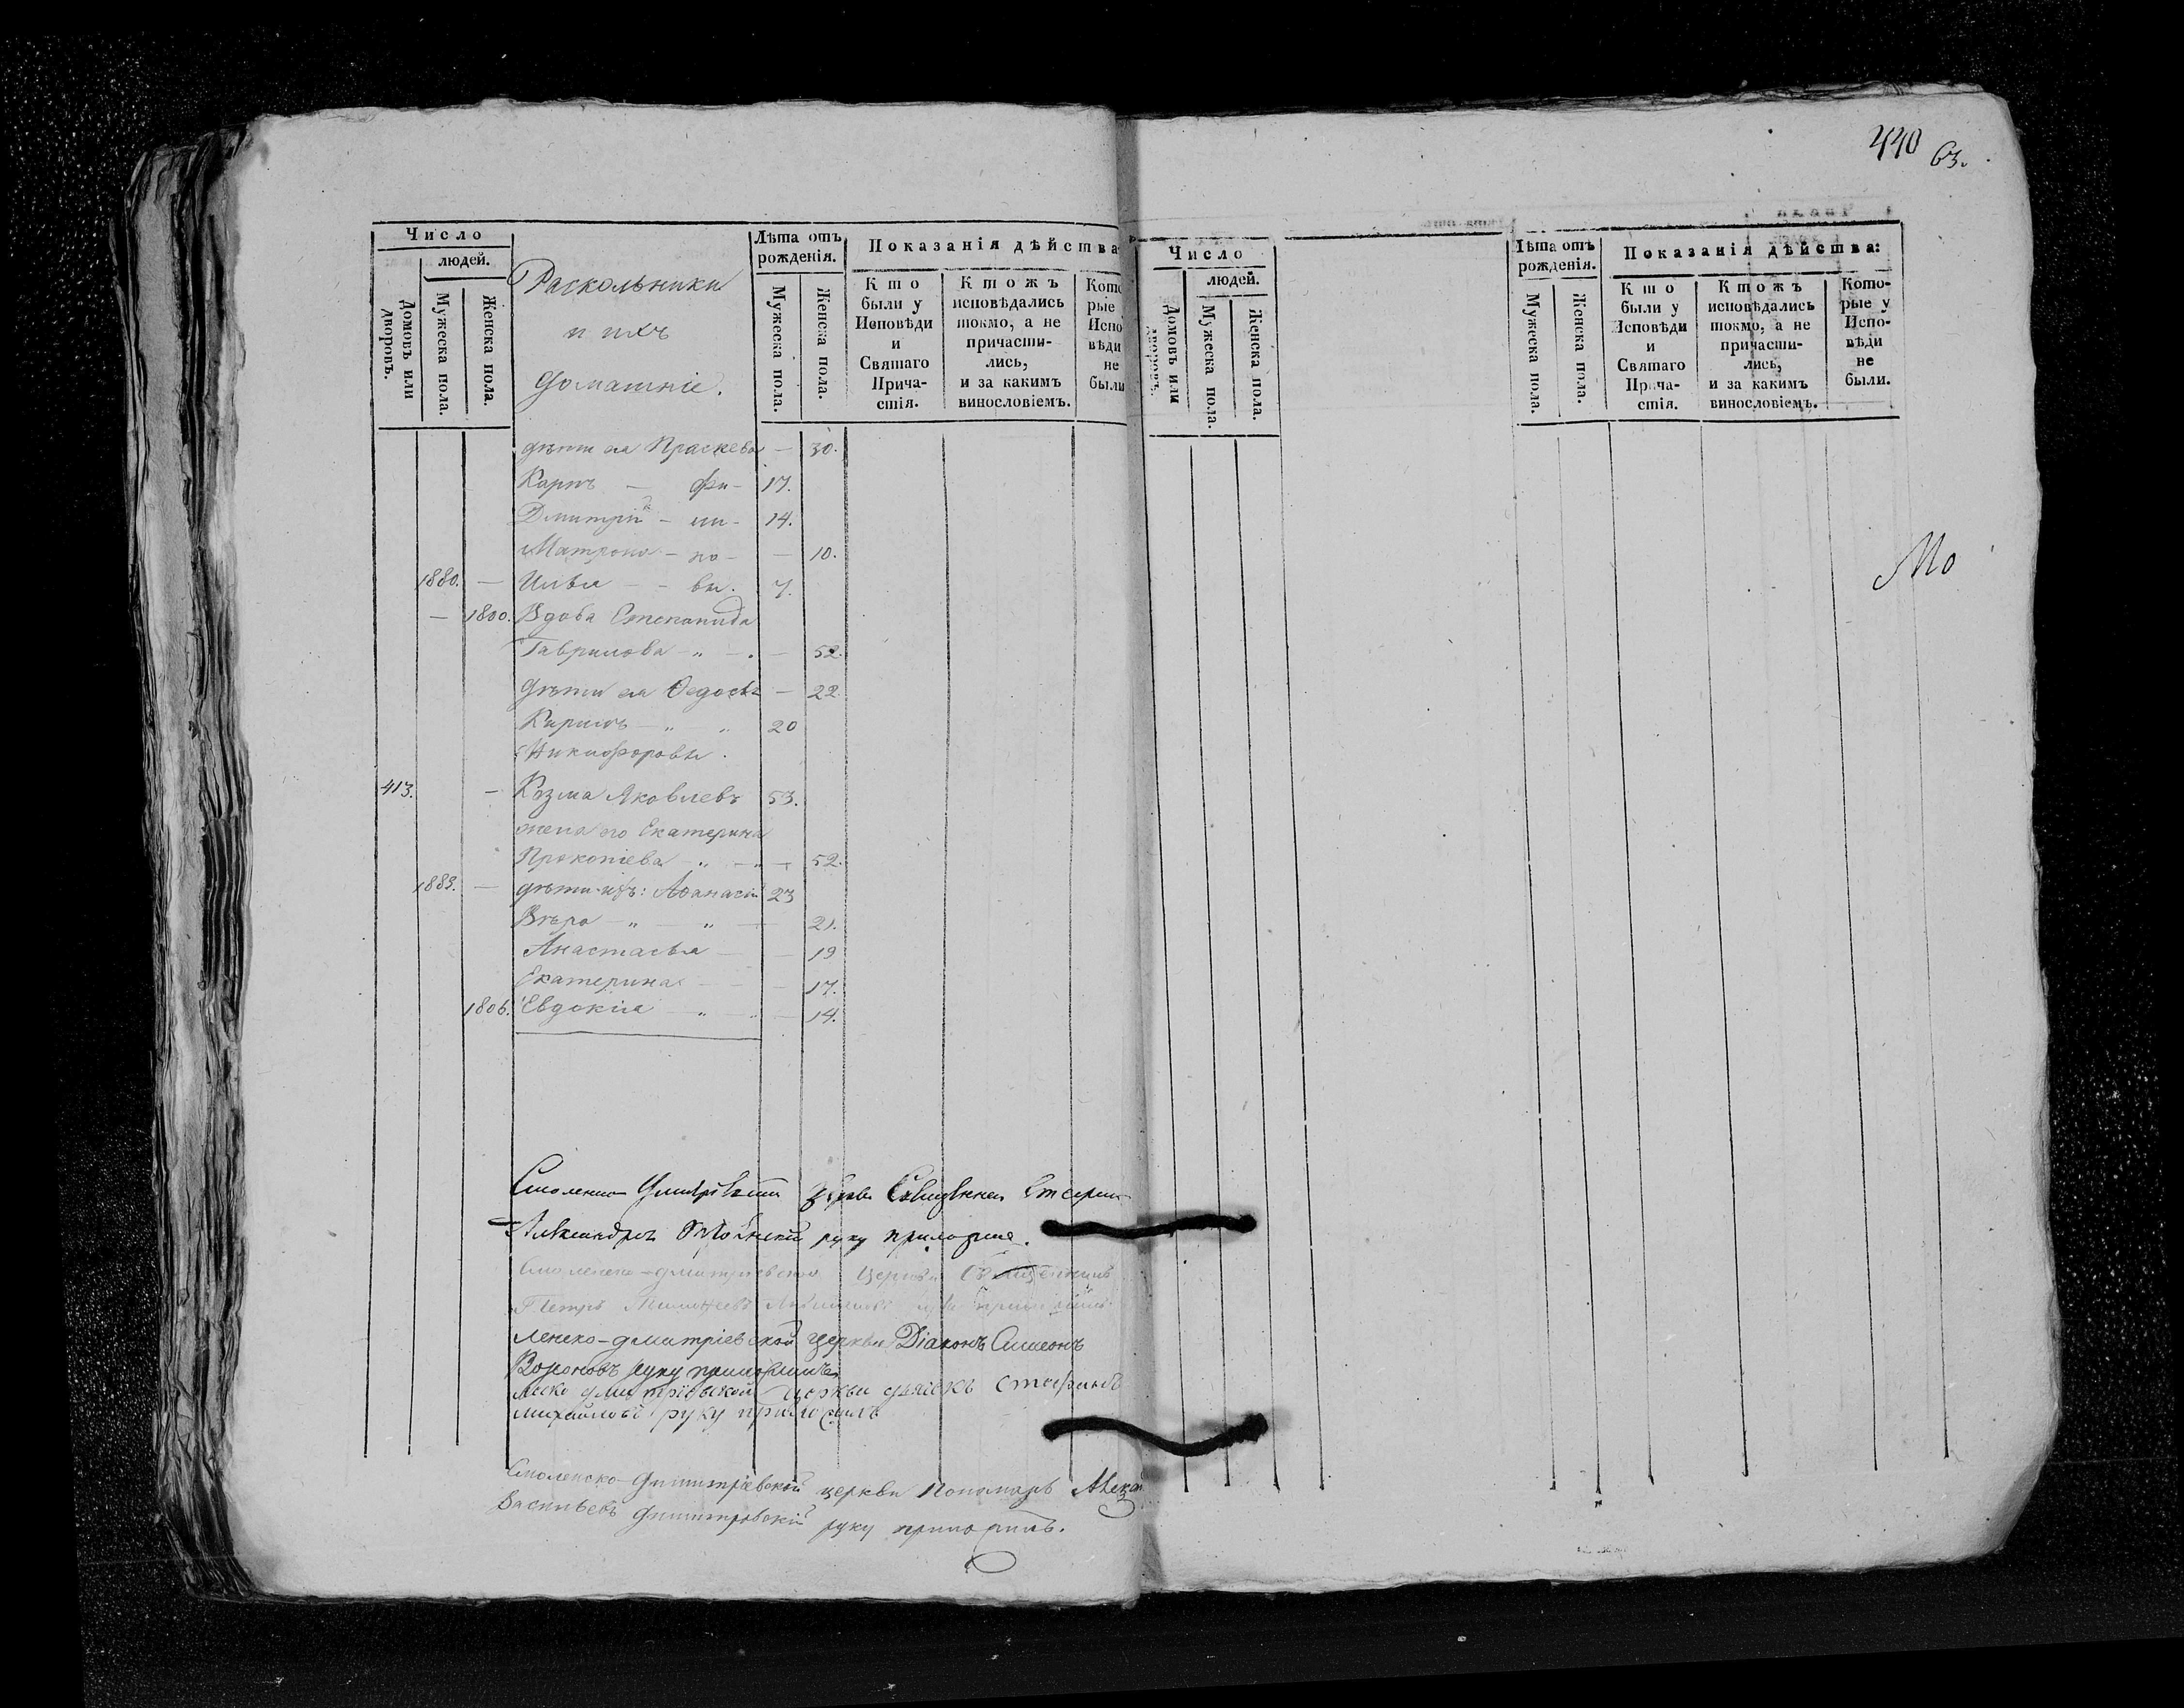 440 63.
Число
людей.
Домовъ или дворовъ.
Мужеска пола.
Женска пола.
Раскольники
и ихъ
домашніе.
Лѣта отъ рожденія.
Мужеска пола.
Женска пола.
Показанія дѣйства
Кто были у Исповѣди и Святаго Прича-стія.
Ктожъ исповѣдались токмо, а не причасти-лись, и за какимъ винословіемъ.
Кото рые Испо вѣди не были
дѣти ея Праскева — 30.
Карпъ — фи- 17.
Дмитрій — ли- 14.
Матрона — по- — 10.
1880. — Илья — вы. 7.
— 1800. Вдова Степанида
Гаврилова „ — — 52.
дѣти ея Федосья — 22.
Кирилъ „ „ 20
Никифоровы.
413. — Козма Яковлевъ 53.
жена его Екатерина
Прокопіева „ „ — 52.
1883. — дѣти ихъ: Афанасій 23
Вѣра „ „ — 21.
Анастасья — — 19
Екатерина — — 17.
1806. Евдокіа „ „ — 14.
Смоленско Димитріевской церкви Священникъ
Александръ руку приложилъ.
Смоленско-дмитріевской Церкви Священникъ
Петръ руку приложилъ.
ленско-дмитріевской церкви Діаконъ Симеонъ
Вороновъ руку приложилъ
церкви дьячекъ Стефанъ
Михайловъ руку приложилъ
Смоленско-Димитріевской церкви Пономарь
Васильевъ Димитровскій руку приложилъ.
Число
людей.
Домовъ или дворовъ.
Мужеска пола.
Женска пола.
Лѣта отъ рожденія.
Мужеска пола.
Женска пола.
Показанія дѣйства:
Кто были у Исповѣди и Святаго Прича-стія.
Ктожъ исповѣдались токмо, а не причасти-лись, и за какимъ винословіемъ.
Кото-рые у Испо-вѣди не были.
Мо